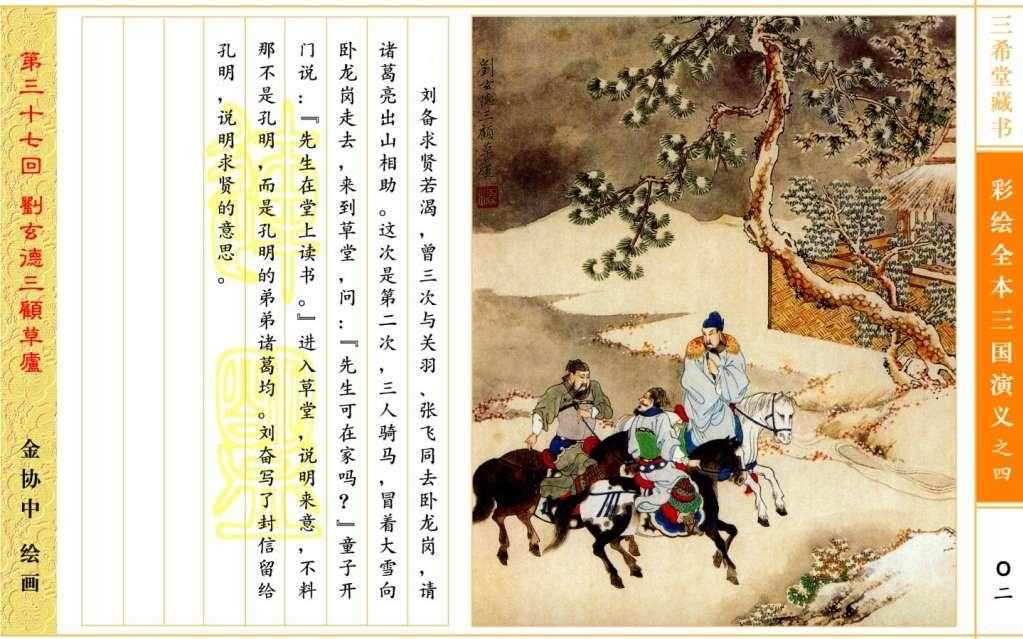 三希堂藏书
彩绘全本三国演义之四
〇二
劉玄德三顧草廬
刘备求贤若渴，曾三次与关羽、张飞同去卧龙岗，请
诸葛亮出山相助。这次是第二次，三人骑马，冒着大雪向
卧龙岗走去，来到草堂，问：『先生可在家吗？』童子开
门说：『先生在堂上读书。』进入草堂，说明来意，不料
那不是孔明，而是孔明的弟弟诸葛均。刘奋写了封信留给
孔明，说明求贤的意思。
第三十七回 劉玄德三顧草廬
金协中 绘画